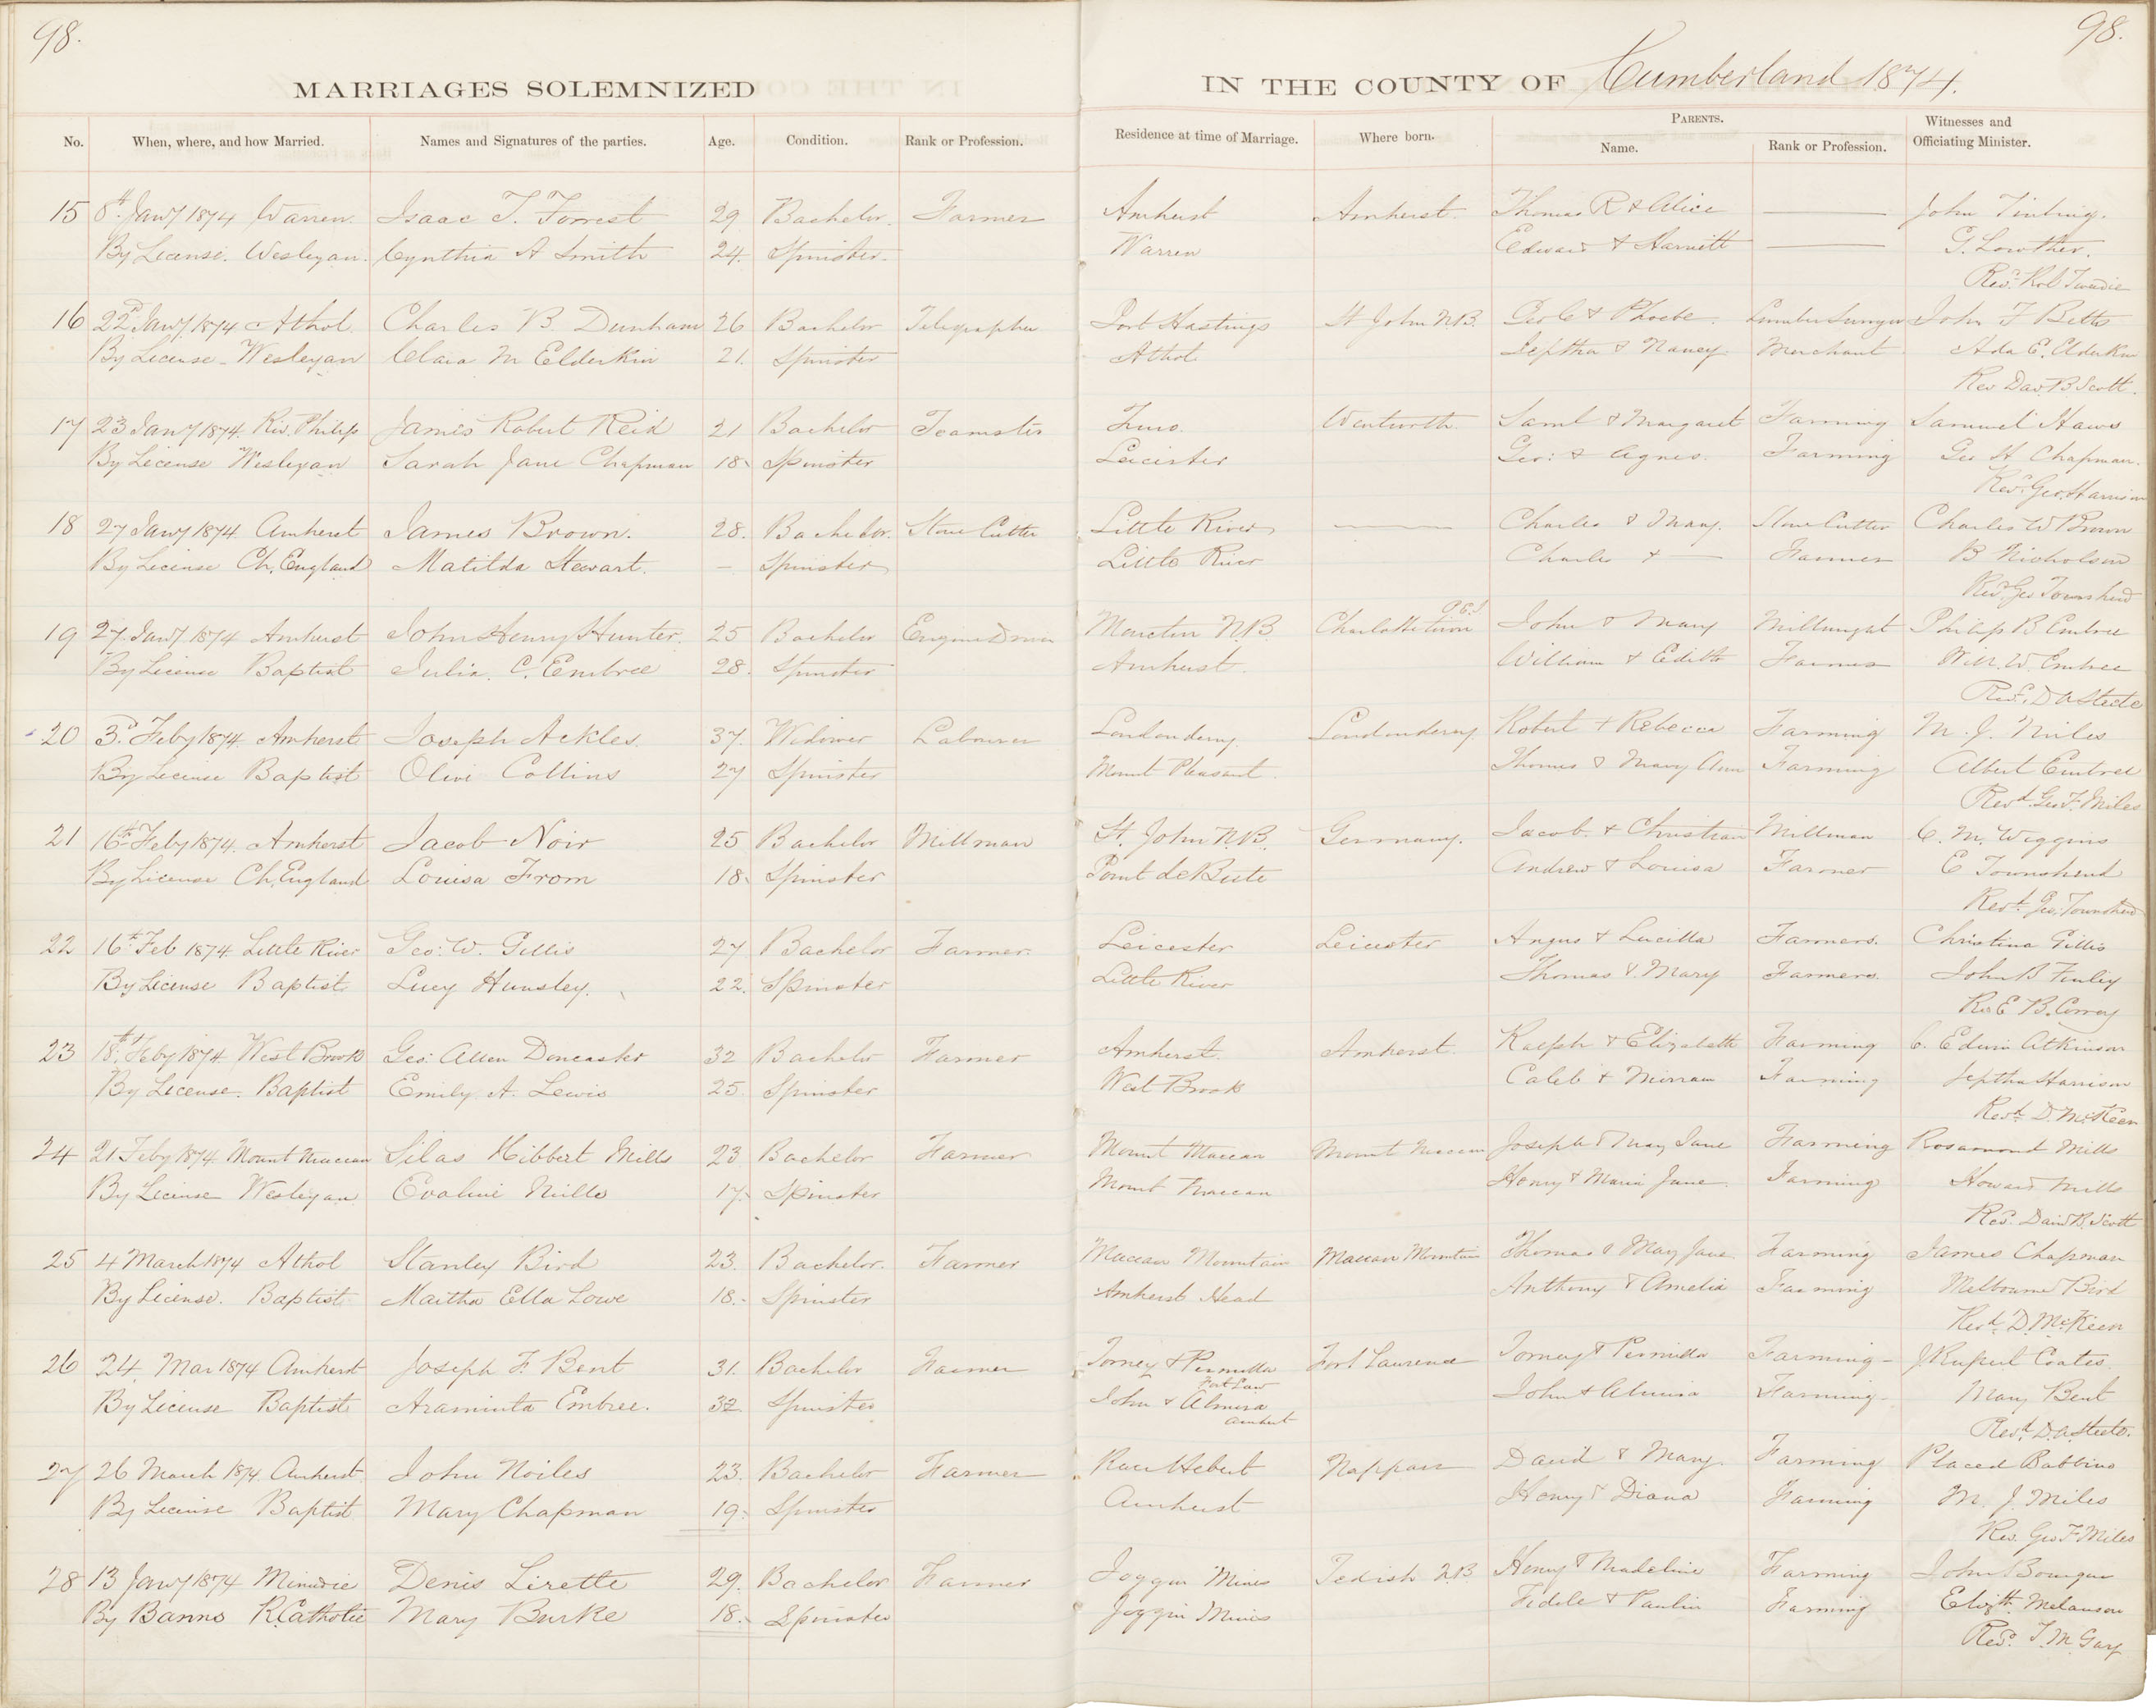 98.
98.
MARRIAGES SOLEMNIZED
IN THE COUNTY OF Cumberland 1874.
No. When, where, and how Married. Names and Signatures of the parties. Age. Condition. Rank or Profession. Residence at time of Marriage. Where born. PARENTS. Name. Rank or Profession. Witnesses and Officiating Minister.
15 8th Jany 1874 Warren. Isaac T. Forrest 29 Bachelor. Farmer Amherst Amherst. Thomas R & Alice John Tinling.
By License. Wesleyan. Cynthia A Smith 24. Spinster. Warren Edward & Harriett G. Lowther.
Revd. Rob Tweedie
16 22d Jany 1874 Athol. Charles B. Dunham 26 Bachelor Telegrapher Port Hastings St John N.B. Geo C & Phoebe. Lumber Surveyor John F Betts
By License - Wesleyan Clara M Elderkin 21. Spinster Athol Jeptha & Nancy Merchant Ada E. Elderkin
Rev Davd. B Scott.
17 23 Jany 1874. Riv. Philip James Robert Reid 21 Bachelor Teamster Truro. Wentworth. Saml & Margaret Farming Samuel Haws
By License Wesleyan Sarah Jane Chapman 18. Spinster Leicester Geo: & Agnes. Farming Geo H Chapman.
Revd. Geo. Harrison
18 27 Jany 1874. Amherst James Brown. 28. Bachelor. Stone Cutter Little River Charles & Mary. Stone Cutter Charles W Brown
By License Ch. England Matilda Stewart. — Spinster Little River Charles & — Farmer B Nicholson
Revd. Geo Townshend
19 27. Jany 1874 Amherst John Henry Hunter. 25 Bachelor Engine Driver Moncton N.B. Charlottetown P.E.I John & Mary Millwright Philip B Embree
By License Baptist Julia. C. Embree 28. Spinster Amherst. William & Edith Farmer Will. W. Embree
Revd. D A Steele
20 3d. Feby 1874. Amherst Joseph Ackles. 37. Widower Labourer Londonderry. Londonderry. Robert & Rebecca Farming M. J. Miles
By License Baptist Olive Collins 27 Spinster Mount Pleasant. Thomas & Mary Ann Farming Albert Embree
Revd. Geo. F. Miles
21 16th Feby 1874. Amherst Jacob Noir 25 Bachelor Millman St. John N.B. Germany. Jacob. & Christian Millman C. M. Wiggins
By License Ch. England Louisa From 18. Spinster Point de Bute Andrew & Louisa Farmer E Townshend
Revd. Geo. Townshend
22 16th Feb 1874. Little River Geo: W. Gillis 27 Bachelor Farmer. Leicester Leicester Angus & Lucilla Farmers. Christina Gillis
By License Baptist Lucy Hunsley. 22. Spinster Little River Thomas & Mary Farmers John B Finley
Rev E B. Correy
23 18th. Feby 1874 West Brook Geo: Allen Doncaster 32 Bachelor Farmer Amherst. Amherst. Ralph & Elizabeth Farming C. Edwin Atkinson
By License. Baptist Emily A. Lewis 25. Spinster West Brook Caleb & Miriam Farming Jeptha Harrison
Revd. D. McKeen
24 21 Feby 1874. Mount Maccan Silas Hibbert Mills 23 Bachelor Farmer Mount Maccan Mount Maccan Joseph & Mary Jane Farming Rosamond Mills
By License Wesleyan Evaline Mills 17. Spinster Mount Maccan Henry & Maria Jane. Farming Howard Mills
Revd. David B. Scott
25 4 March 1874 Athol Stanley Bird 23. Bachelor. Farmer Maccan Mountain Maccan Mountain Thomas & Mary Jane. Farming James Chapman
By License. Baptist Martha Ella Lowe 18. Spinster Amherst Head Anthony & Amelia Farming Melbourne Bird
Revd. D. McKeen
26 24. Mar 1874 Amherst Joseph F. Bent 31. Bachelor Farmer Torney & Permilla Fort Law Fort Lawrence Torney & Permilla Farming - J Rupert Coates.
By License Baptist Araminta Embree. 32. Spinster John & Almira Amherst John & Almira Farming - Mary Bent
Revd. D. A. Steele.
27 26 March 1874. Amherst. John Noiles 23. Bachelor Farmer River Hebert Nappan David & Mary. Farming Placed Babbins
By License Baptist Mary Chapman 19. Spinster Amherst Henry & Diana Farming M. J. Miles
Rev. Geo F Miles
28 13 Jany 1874 Minudie Denis Lirette 29. Bachelor Farmer Joggin Mines Tedish N.B Henry & Madeline Farming John Bourque
By Banns R. Catholic Mary Burke 18. Spinster Joggin Mines Fidele & Paulin Farming Elizth. Melanson
Revd. T. M Gay